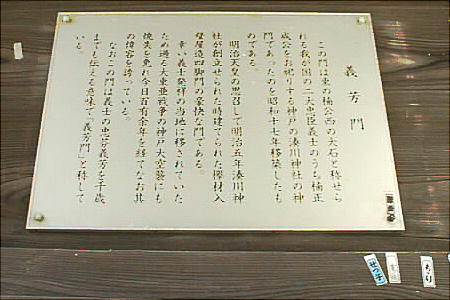 義芳門
この門は東の楠公西の大石と称せら
れる我が国の二大忠臣義士のうち楠正
成公をお祀りする神戸の湊川神社の神
門であったのを昭和十七年移築したも
のである。
明治天皇の思召しで明治五年湊川神
社が創立せられた時建てられた欅材入
母屋造四脚門の豪快な門である。
幸い義士発祥の当地に移されていた
ため過る大東亜戦争の神戸大空襲にも
焼失を免れ今日百有余年を経てなお其
の偉容を誇っている。
なおこの門は義士の忠義芳を千歳
までも伝える意味で「義芳門」と称して
いる。
せつ子